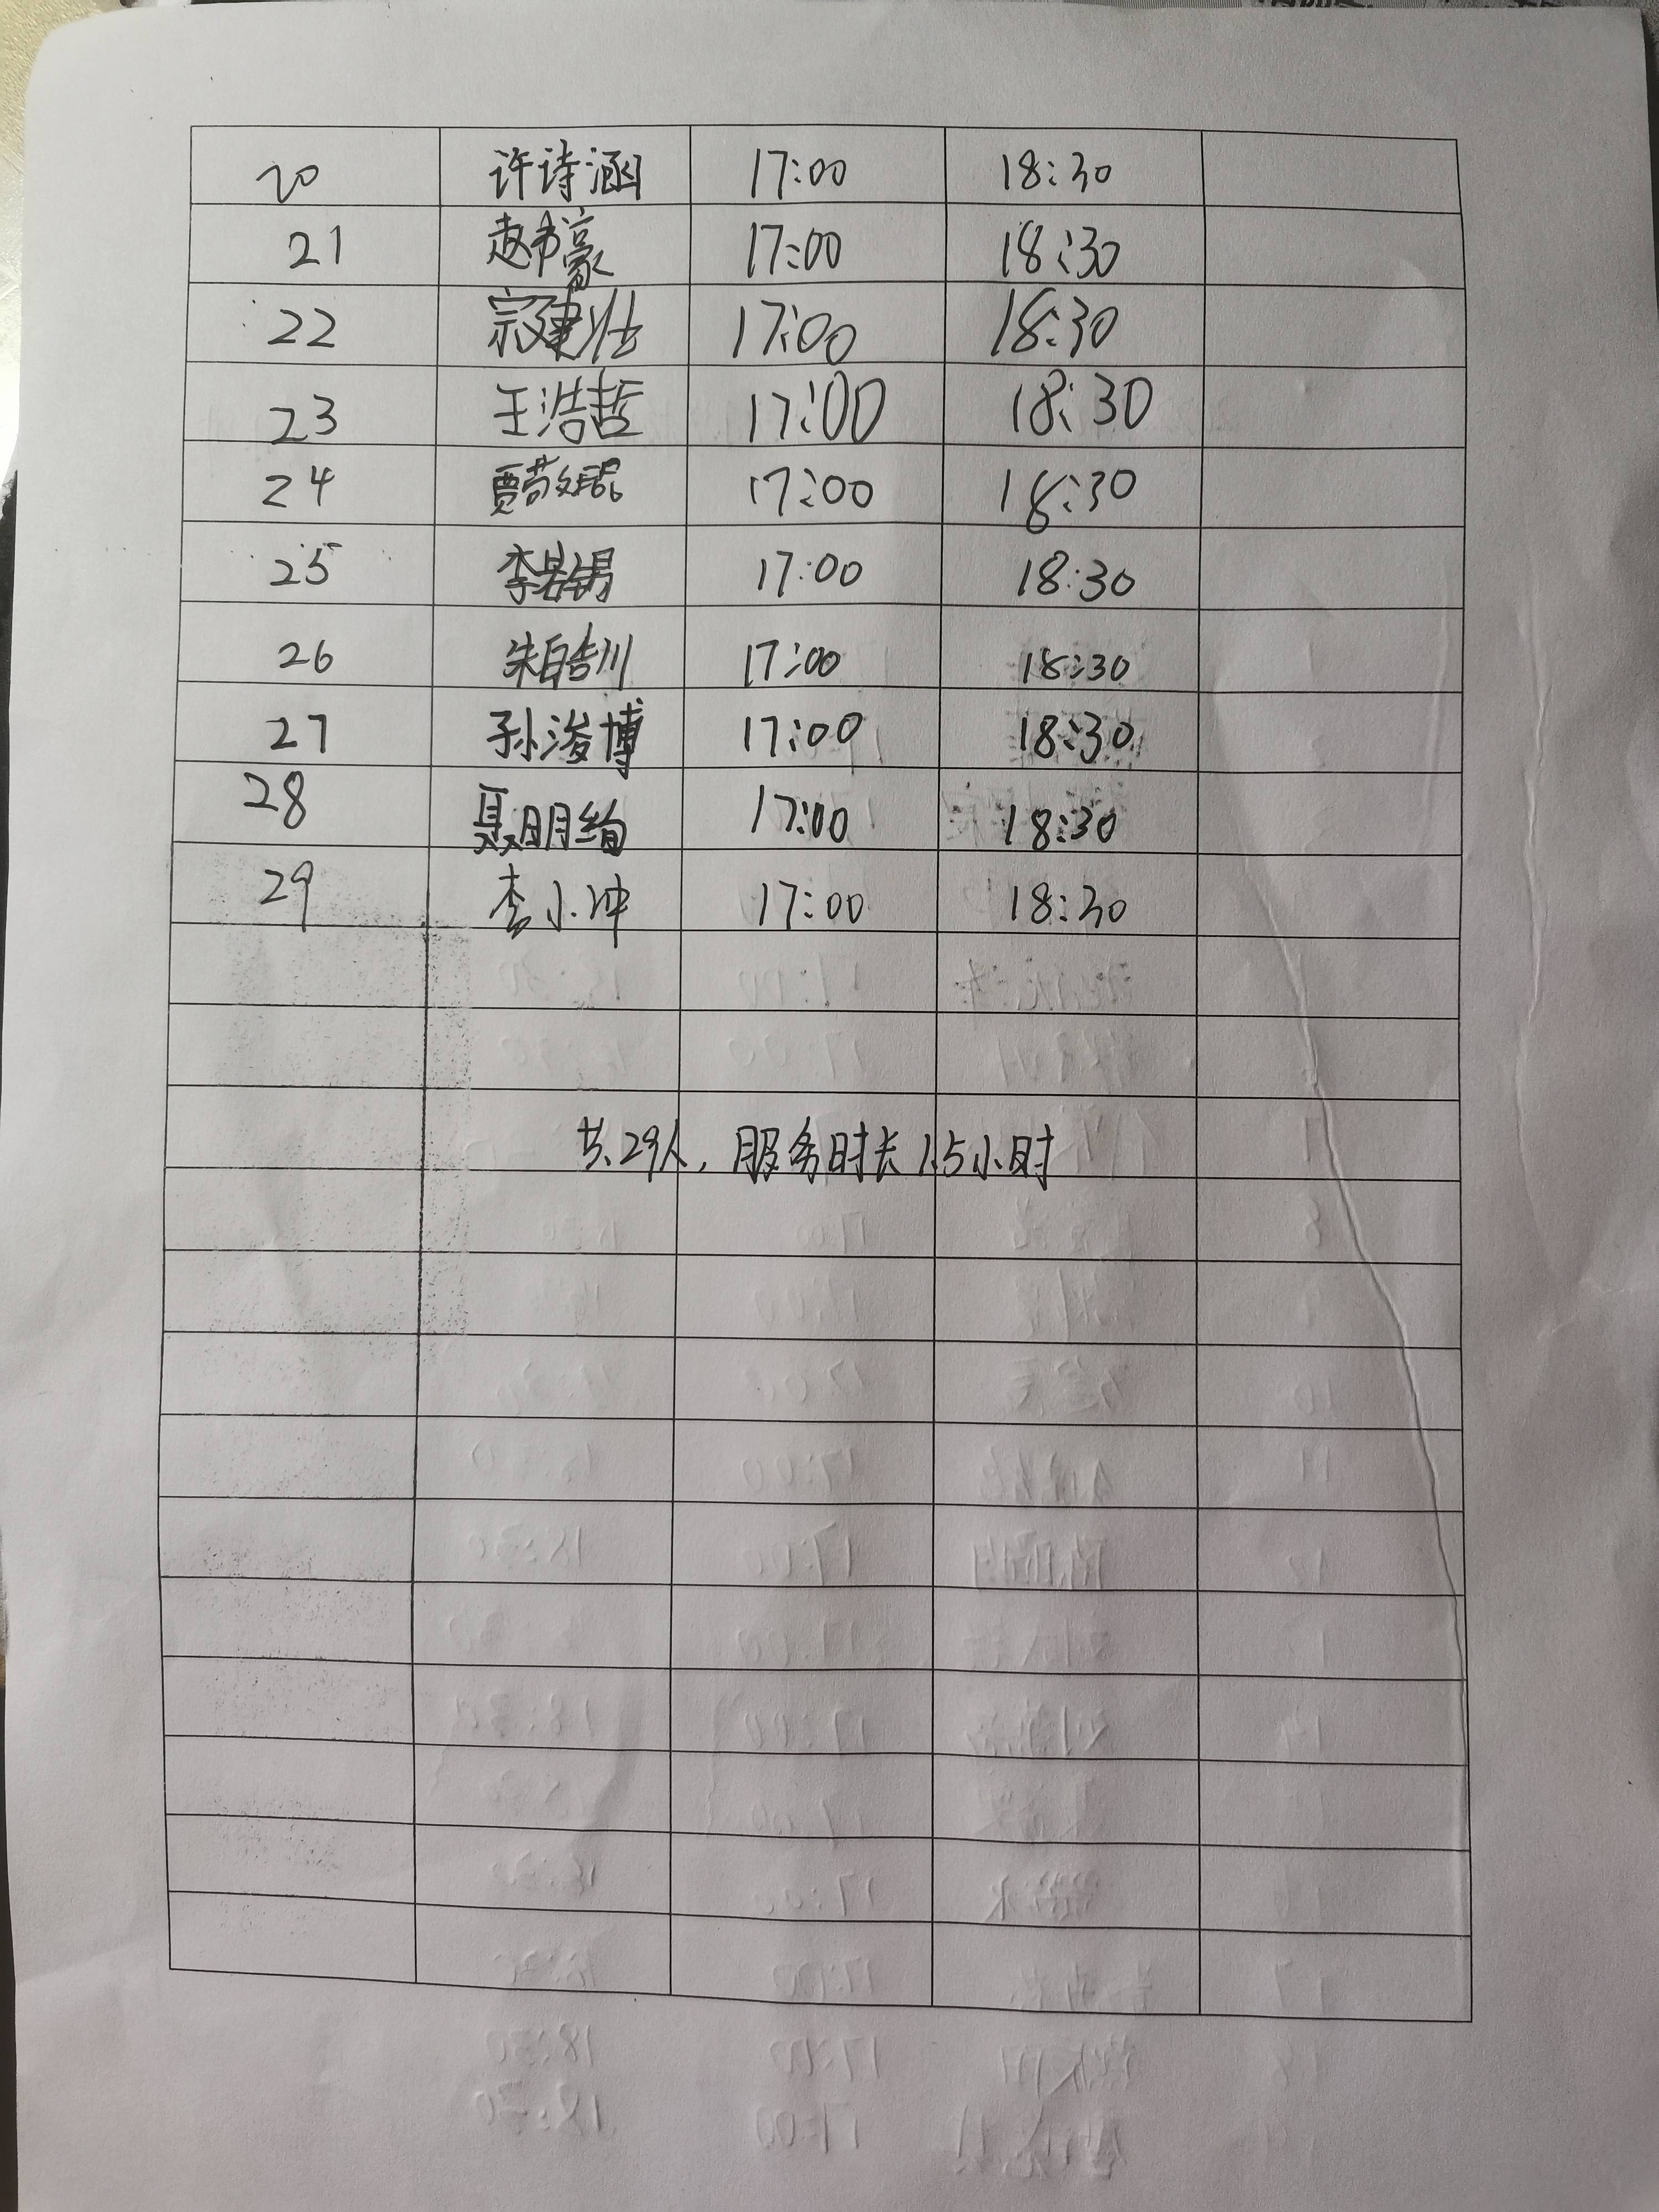 20 许诗涵 17:00 18:30
21 赵书豪 17:00 18:30
22 宗建壮 17:00 18:30
23 王浩哲 17:00 18:30
24 贾 17:00 18:30
25 李 17:00 18:30
26 朱皓川 17:00 18:30
27 孙浚博 17:00 18:30
28 聂明绚 17:00 18:30
29 李小冲 17:00 18:30
共29人，服务时长1.5小时